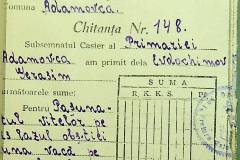 Comuna Adamovca
Chitanța Nr. 148.
Subsemnatul Casier al Primăriei
Adamovca am primit dela Evdochimov
Gerasim
următoarele sume:
SUMA
R. K. K. S. P.
Pentru Pășuna-
tul vitelor pe
vacă pe